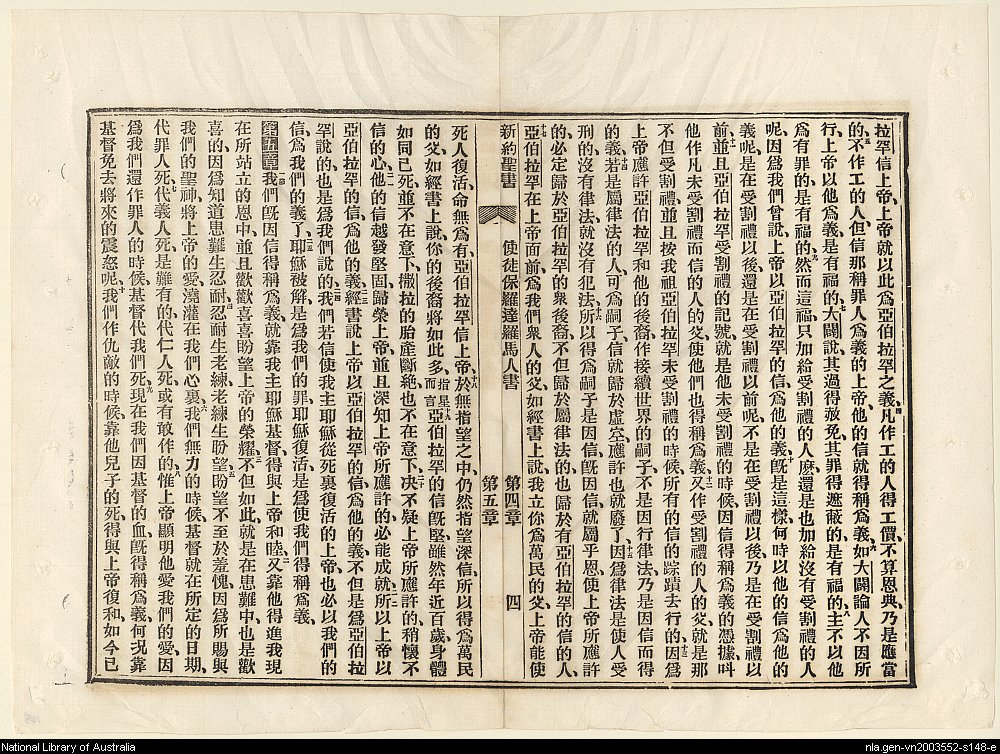 拉罕信上帝上帝就以此爲亞伯拉罕之義四凡作工的人得工價不算恩典乃是應當
的五不作工的人但信那稱罪人爲義的上帝他的信就得稱爲義如六大闢論人不因所
行上帝以他爲義是有福的七大闢說其過得赦免其罪得遮蔽的是有福的八主不以他
爲有罪的是有福的九然而這福只加給受割禮的人麽還是也加給沒有受割禮的人
呢因爲我們曾說上帝以亞伯拉罕的信爲他的義旣十是這樣何時以他的信爲他的
義呢是在受割禮以後還是在受割禮以前呢不是在受割禮以後乃是在受割禮以
前十一並且亞伯拉罕受割禮的記號就是他未受割禮的時候因信得稱爲義的憑據呌
他作凡未受割禮而信的人的父使他們也得稱爲義十二又作受割禮的人的父就是那
不但受割禮並且按我祖亞伯拉罕未受割禮的時候所有的信的踪蹟去行的十三因爲
上帝應許亞伯拉罕和他的後裔作接續世界的嗣子不是因行律法乃是因信而得
的義十四若是屬律法的人可爲嗣子信就歸於虛空應許也就廢了十五因爲律法是使人受
刑的沒有律法就沒有犯法十六所以得爲嗣子是因信旣因信就屬乎恩使上帝所應許
的必定歸於亞伯拉罕的衆後裔不但歸於屬律法的也歸於有亞伯拉罕的信的人
十七亞伯拉罕在上帝面前爲我們衆人的父如經書上說我立你爲萬民的父上帝能使
新約聖書 使徒保羅達羅馬人書 第四章 第五章 四
死人復活命無爲有亞伯拉罕信上帝十八於無指望之中仍然指望深信所以得爲萬民
的父如經書上說你的後裔將如此多指星而言十九亞伯拉罕的信旣堅雖然年近百歲身體
如同已死並不在意下撒拉的胎產斷絶也不在意下二十决不疑上帝所應許的稍懷不
信的心他的信越發堅固歸榮上帝二一並且深知上帝所應許的必能成就二二所以上帝以
亞伯拉罕的信爲他的義二三經書說上帝以亞伯拉罕的信爲他的義不但是爲亞伯拉
罕說的也是爲我們說的二四我們若信使我主耶穌從死裏復活的上帝也必以我們的
信爲我們的義了二五耶穌被解是爲我們的罪耶穌復活是爲使我們得稱爲義
第五章一我們旣因信得稱爲義就靠我主耶穌基督得與上帝和睦二又靠他得進我現
在所站立的恩中並且歡歡喜喜盼望上帝的榮耀三不但如此就是在患難中也是歡
喜的因爲知道患難生忍耐四忍耐生老練老練生盼望五盼望不至於羞愧因爲所賜與
我們的聖神將上帝的愛澆灌在我們心裏六我們無力的時候基督就在所定的日期
代罪人死七代義人死是難有的代仁人死或有敢作的八惟上帝顯明他愛我們的愛因
爲我們還作罪人的時候基督代我們死九現在我們因基督的血旣得稱爲義何况靠
基督免去將來的震怒呢十我們作仇敵的時候靠他兒子的死得與上帝復和如今已
National Library of Australia
nla.gen-vn2003552-s148-e